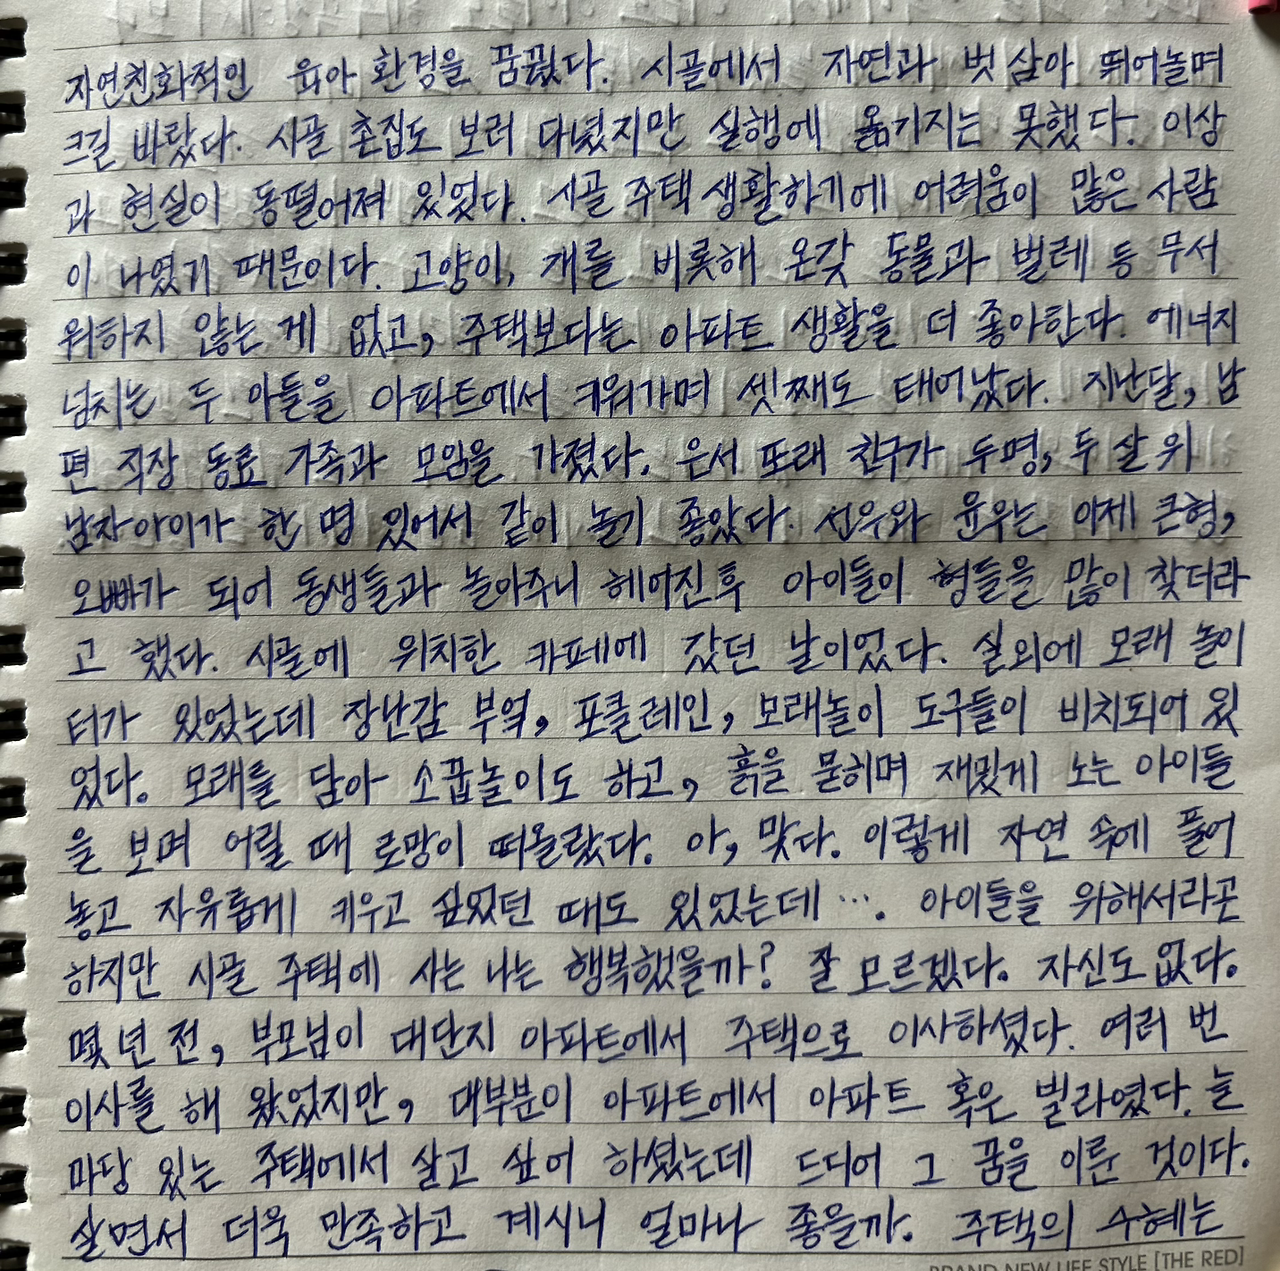 자연친화적인 육아 환경을 꿈꿨다. 시골에서 자연과 벗 삼아 뛰어놀며
크길 바랐다. 시골 촌집도 보러 다녔지만 실행에 옮기지는 못했다. 이상
과 현실이 동떨어져 있었다. 시골 주택 생활하기에 어려움이 많은 사람
이 나였기 때문이다. 고양이, 개를 비롯해 온갖 동물과 벌레 등 무서
워하지 않는 게 없고, 주택보다는 아파트 생활을 더 좋아한다. 에너지
넘치는 두 아들을 아파트에서 키워가며 셋째도 태어났다. 지난달, 남
편 직장 동료 가족과 모임을 가졌다. 은서 또래 친구가 두명, 두 살 위
남자아이가 한 명 있어서 같이 놀기 좋았다. 선우와 윤우는 이제 큰형,
오빠가 되어 동생들과 놀아주니 헤어진 후 아이들이 형들을 많이 찾더라
고 했다. 시골에 위치한 카페에 갔던 날이었다. 실외에 모래 놀이
터가 있었는데 장난감 부엌, 포클레인, 모래놀이 도구들이 비치되어 있
었다. 모래를 담아 소꿉놀이도 하고, 흙을 묻히며 재밌게 노는 아이들
을 보며 어릴 때 로망이 떠올랐다. 아, 맞다. 이렇게 자연 속에 풀어
놓고 자유롭게 키우고 싶었던 때도 있었는데 ···. 아이들을 위해서라곤
하지만 시골 주택에 사는 나는 행복했을까? 잘 모르겠다. 자신도 없다.
몇 년 전, 부모님이 대단지 아파트에서 주택으로 이사하셨다. 여러 번
이사를 해 왔었지만, 대부분이 아파트에서 아파트 혹은 빌라였다. 늘
마당 있는 주택에서 살고 싶어 하셨는데 드디어 그 꿈을 이룬 것이다.
살면서 더욱 만족하고 계시니 얼마나 좋을까. 주택의 수혜는
BRAND NEW LIFE STYLE [THE RED]